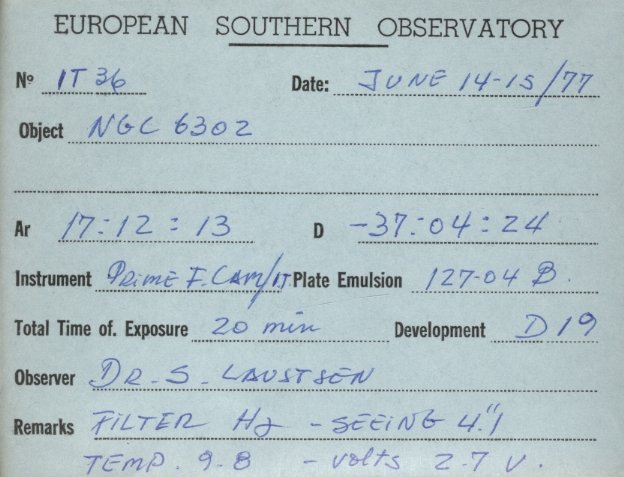 EUROPEAN SOUTHERN OBSERVATORY
Nº IT 36 Date: JUNE 14-15/77
Object NGC 6302
Ar 17:12:13 D -37:04:24
Instrument PRIME F. CAM/IT Plate Emulsion 127-04 B.
Total Time of. Exposure 20 min Development D 19
Observer DR. S. LAUSTSEN
Remarks FILTER - SEEING 4."1
TEMP. 9.8 - volts 2.7 V.